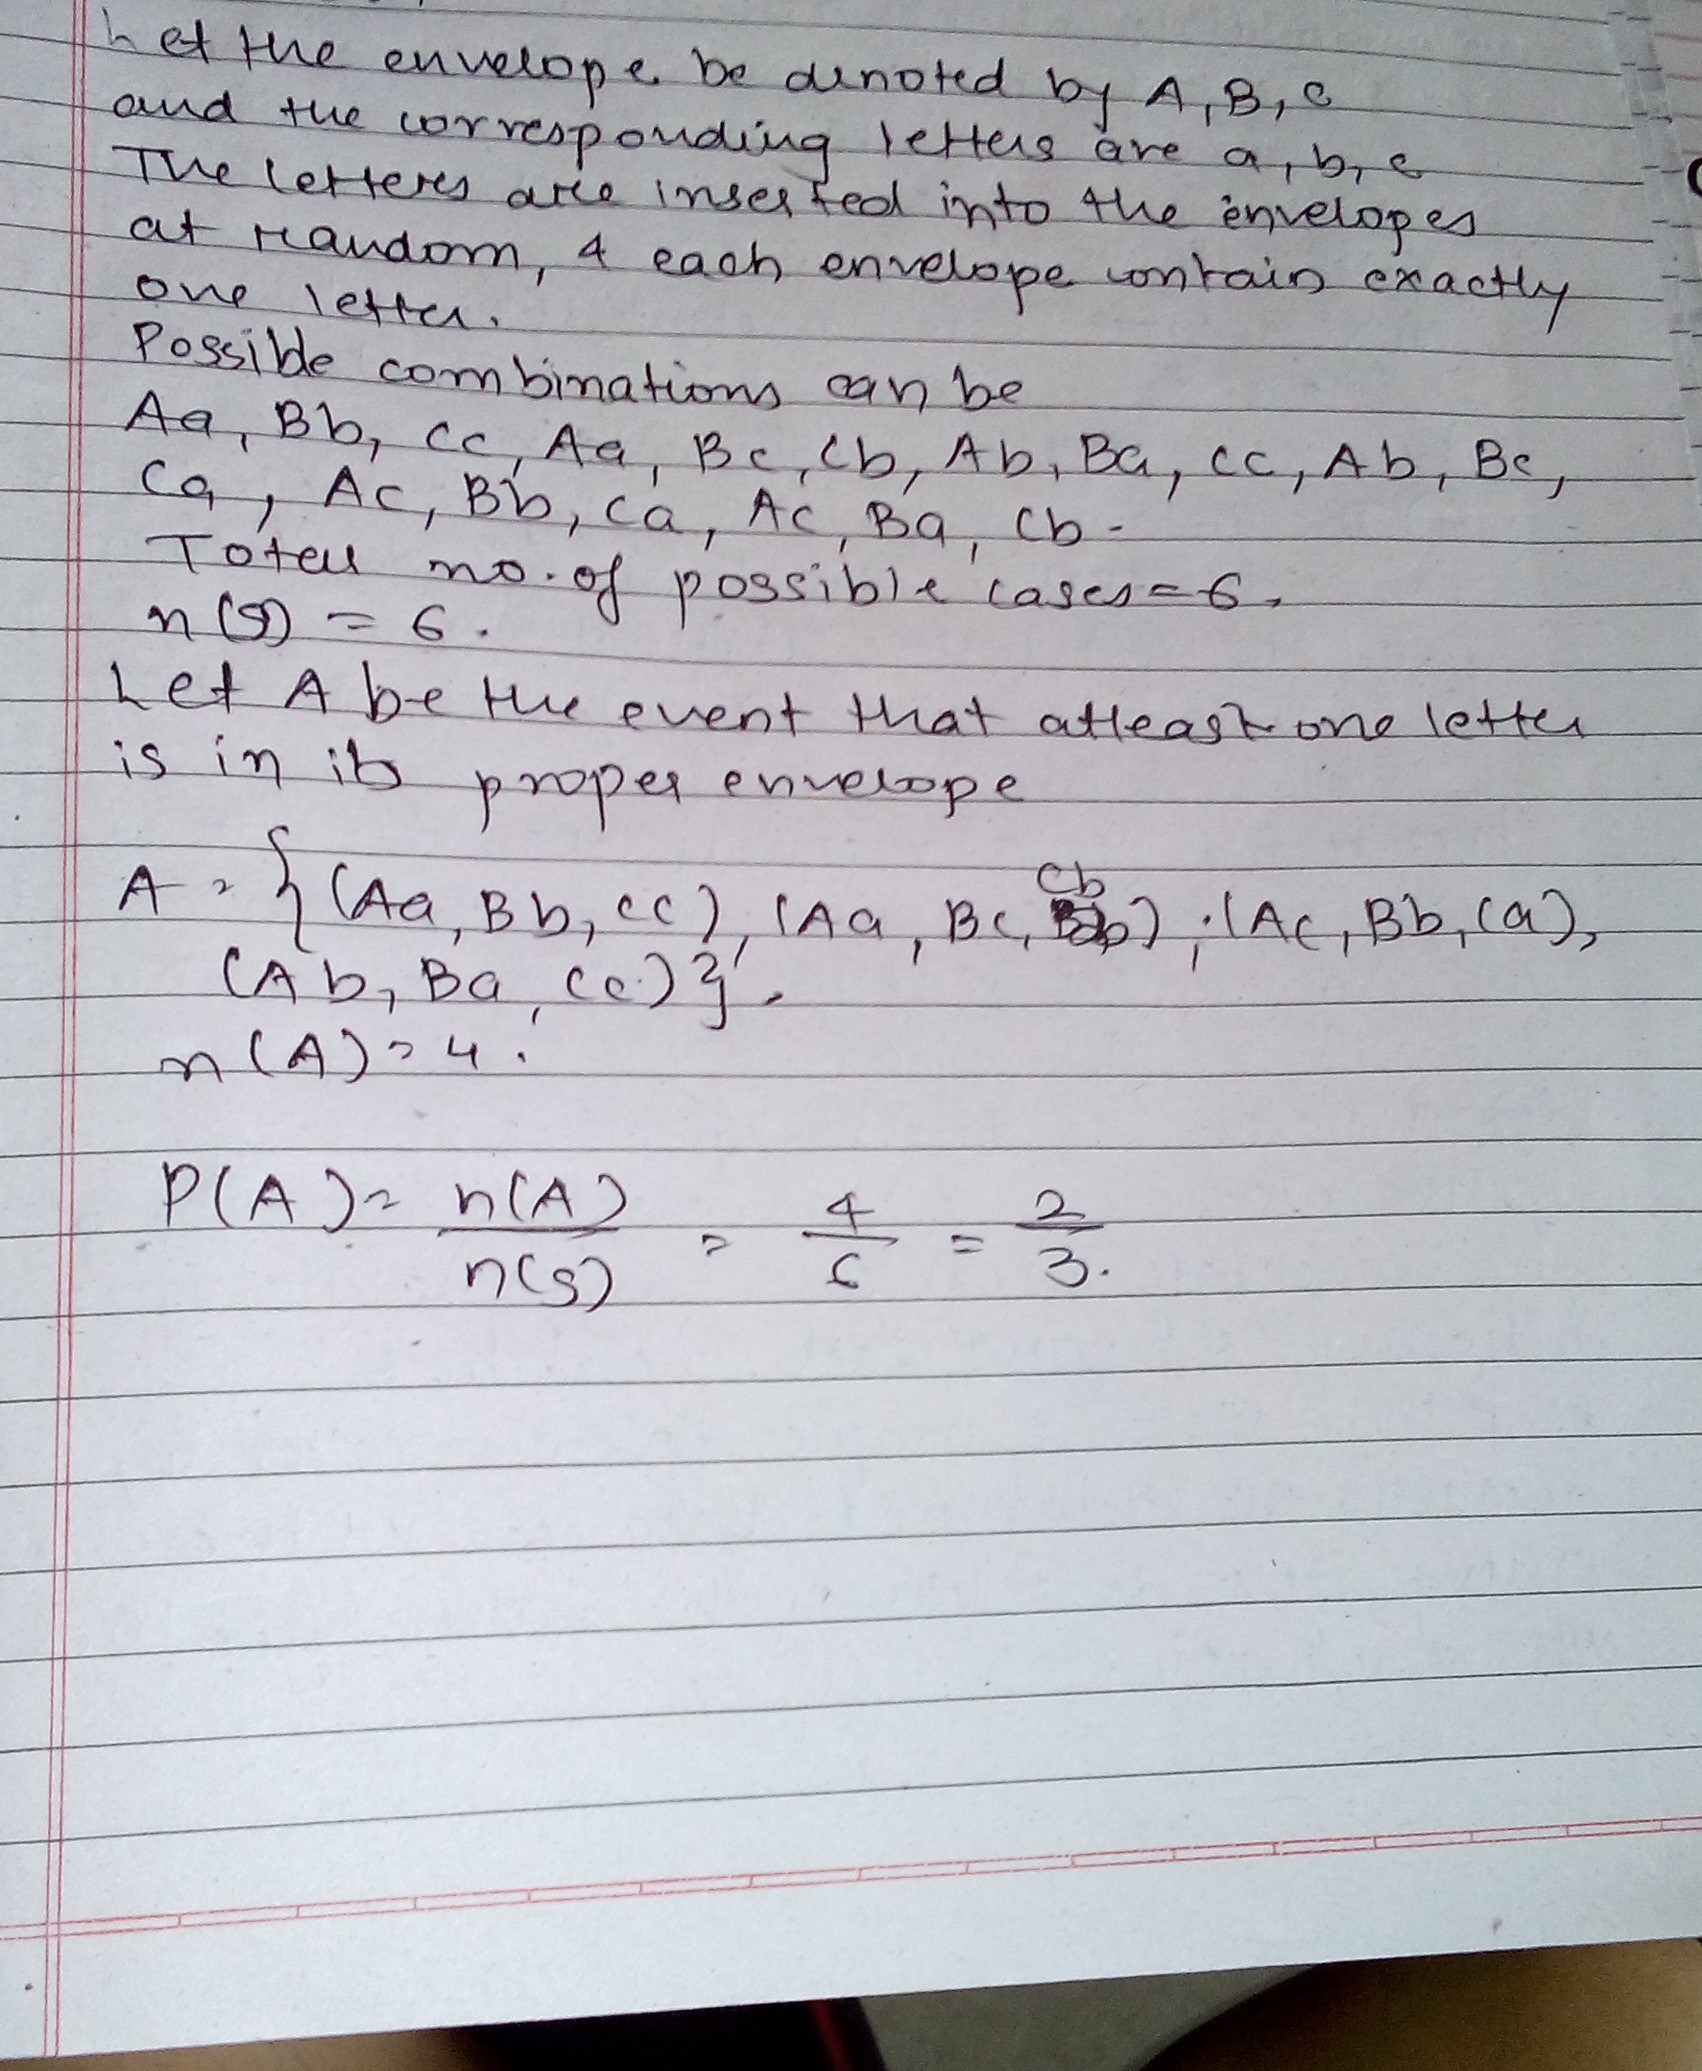 Let the envelope be denoted by A, B, C
and the corresponding letters are a, b, c
The letters are inserted into the envelopes
at random, & each envelope contain exactly
one letter.
Possible combinations can be
Aa, Bb, Cc, Aa, Bc, Cb, Ab, Ba, Cc, Ab, Bc,
Ca, Ac, Bb, Ca, Ac, Ba, Cb.
Total no. of possible cases = 6.
n(S) = 6.
Let A be the event that atleast one letter
is in its proper envelope
A = {(Aa, Bb, Cc), (Aa, Bc, Cb), (Ac, Bb, Ca),
(Ab, Ba, Cc)}.
n(A) = 4.
P(A) = n(A)/n(S) = 4/6 = 2/3.